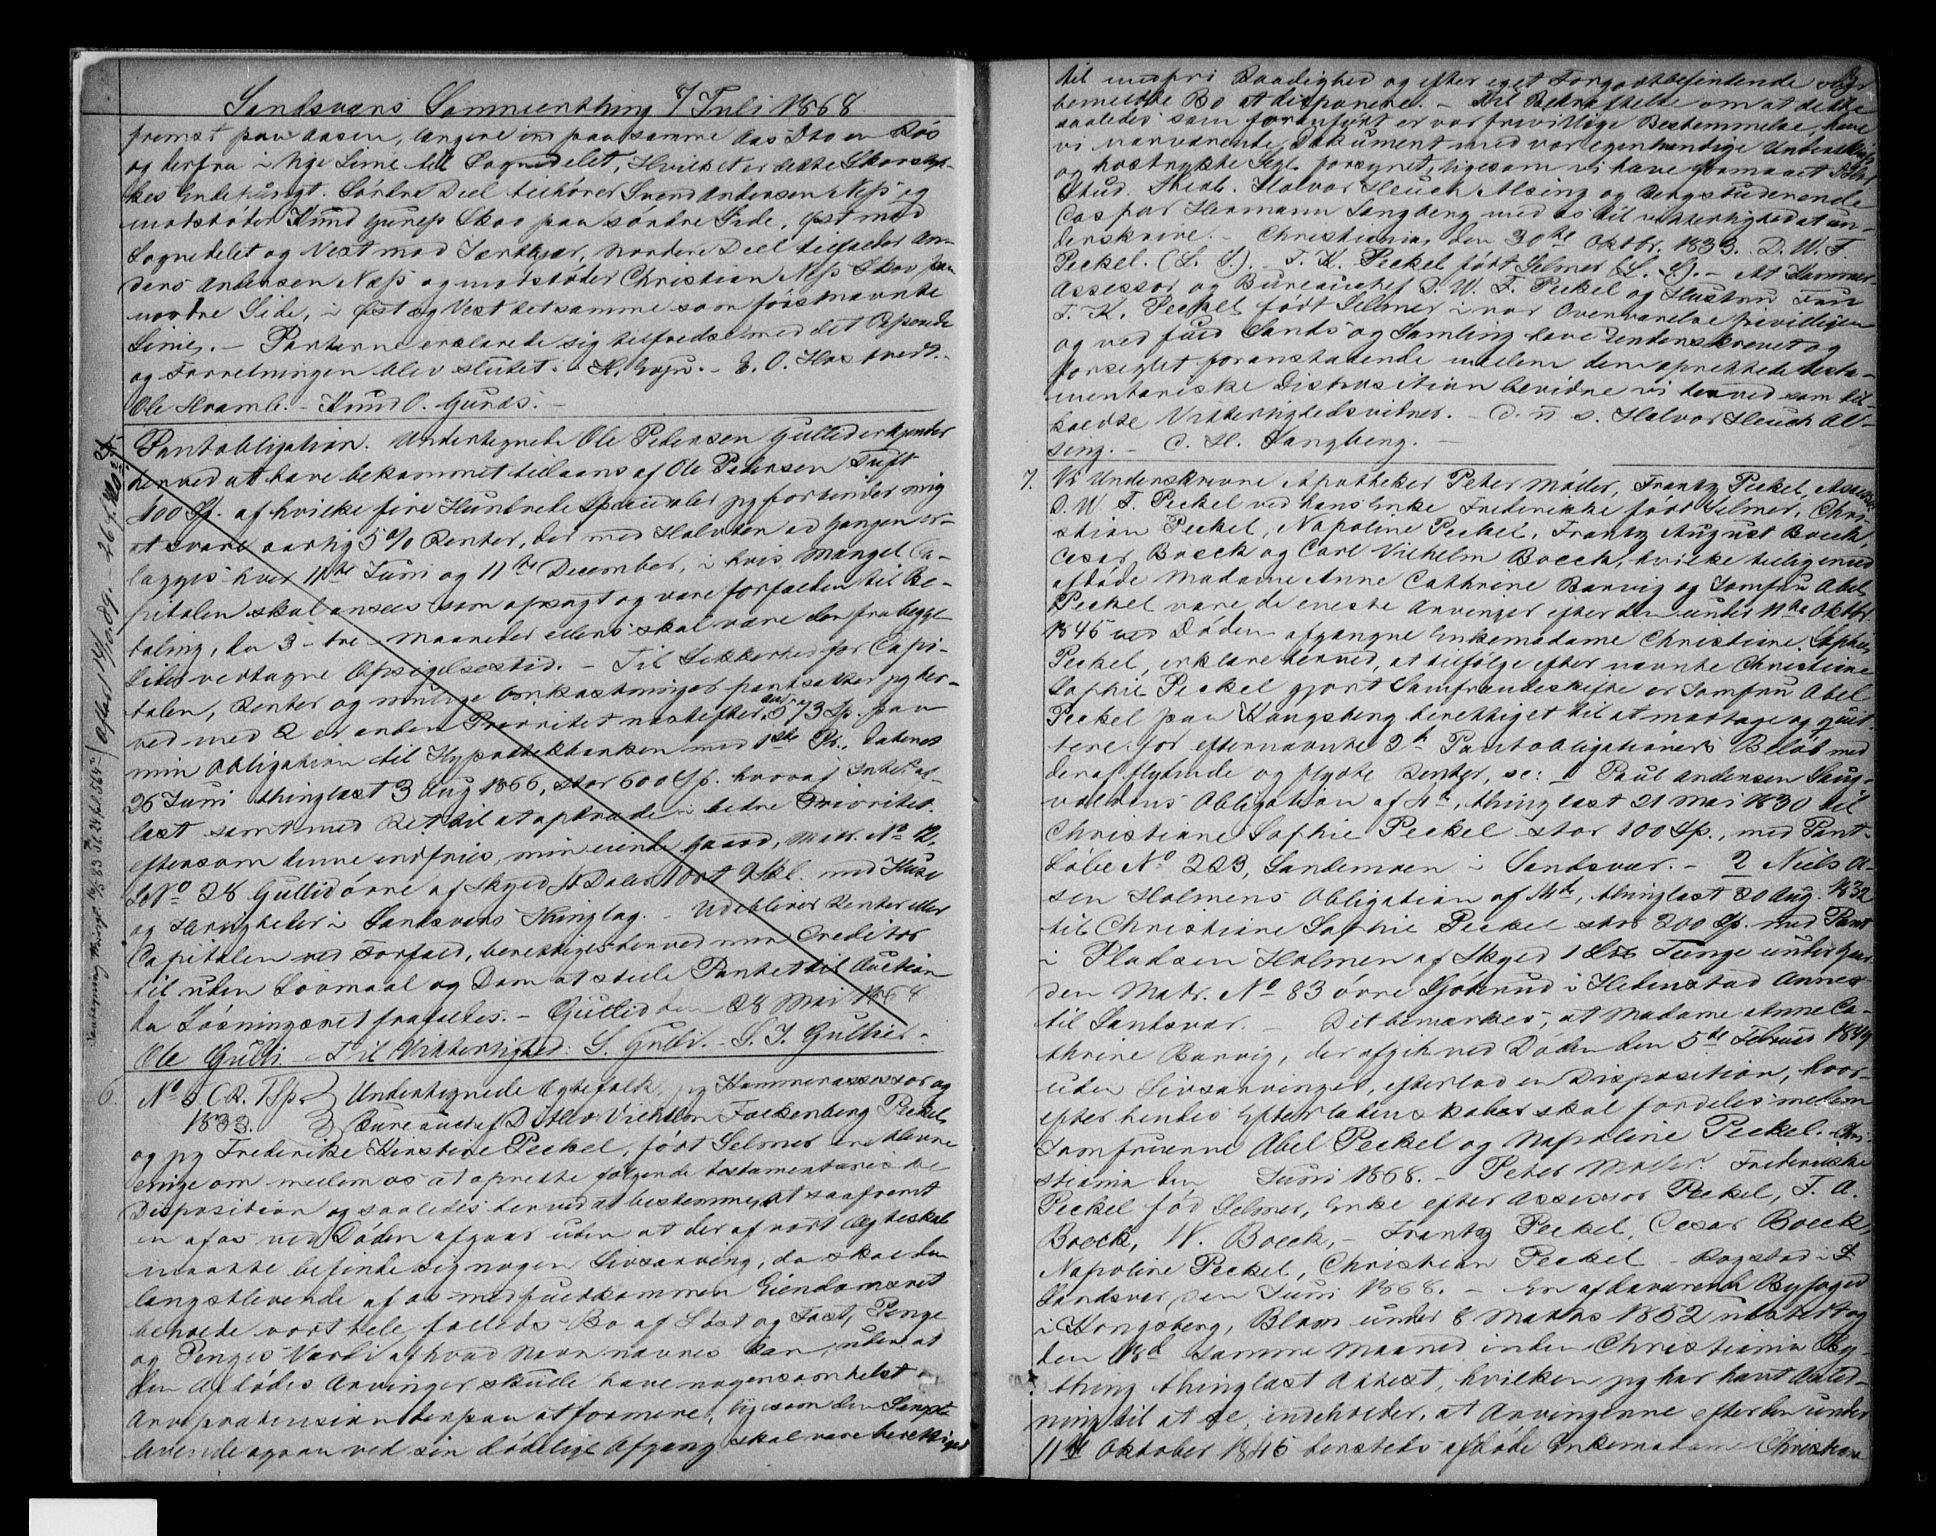 Sandsværs Sommerthing 7 Juli 1868
fremst paa Aasen, længere ind paa samme Aas Dto en Røs
og derfra i lige Linie til Sognedelet, Hvilket er dette Skovstyk-
kes Endepunkt. Søndre Deel tilhører Svend Andersen Næss og
modstøder Knud Gurus Skov paa søndre Side, Øst mod
Sognedelet og Vest mod . Nordre Deel tilfalder An-
ders Andersen Næss og modstøder Christian Næss Skov paa
nordre Side, i Øst og Vest det samme som førstnævnte
Linie. - Parterne erklærede sig tilfredse med det Passerede
og Forretningen blev sluttet. - K. - E. O. Hostvedt.
Ole Kramb. - Knud O. Gurds. -
Pantobligation. Undertegnede Ole Pedersen Gullid erkjender
herved at have bekommet tillaans af Ole Pedersen Tuft
400 Sp. af hvilke fire Hundrede Speciedaler jeg forbinder mig
at svare aarlig 5 % Renter, der med Halvten ad Gangen er-
lægges hver 11te Juni og 11te December, i hvis Mangel Ca-
pitalen skal ansees som opsagt og være forfalden til Be-
taling, da 3 - tre - Maaneder ellers skal være den fra begge
Sider vedtagne Opsigelsestid. - Til Sikkerhed for Capi-
talen, Renter og mulige Omkostninger pantsætter jeg her-
ved med 2 anden Prioritet næstefter 573 Sp. paa
min Obligation til Hypothekbanken med 1ste Pr. dateret
26 Juni thinglæst 3 Aug 1866, stor 600 Sp. hvoraf
læst samt med Ret til at oprykke i bedre Prioritet
eftersom denne indfries, min eiende Gaard, Matr. No 12,
LNo 28 Gullid øvre af Skyld Daler Ort Skl. med Huse
og Herligheder i Sandsværs Thinglag. - Udebliver Renter eller
Capitalen ved Forfald, berettiges herved min Creditor
til uden Lovmaal og Dom at stille Pantet til Auction
da Løsningsret frafaldes. - Gullid den 28 Mai 1868
Ole Gulli - Til Vitterlighed: S. Gulli. - S. J. Gullid. -
6. No 6 C.R. 1 Sp. Undertegnede Egtefolk, jeg Kammerassessor og
1833. Bureauchef Ditlev Vilhelm Falkenberg Peckel
og jeg Frederikke Kirstine Peckel, født Selmer ere blevne
enige om mellem os at oprette følgende testamentariske
Disposition og saaledes herved at bestemme, at saafremt
en af os ved Døden afgaar uden at der af vort Ægteskab
maatte befinde sig nogen Livsarving, da skal den
længstlevende af os med fuldkommen Eiendomsret
beholde vort hele fælleds Bo af Løst og Fast, Penge
og Penges Værdi af hvad Navn nævnes kan, uden at
den Afdødes Arvinger skulde have nogensomhelst
Arveprætension derpaa at formere, ligesom den Længst-
levende ogsaa ved sin dødelige Afgang skal være berettiget
til uindskr. Raadighed og efter eget Forgodtbefindende over
bemeldte Bo at disponere. - Til Bekræftelse om at dette
saaledes som foranført er vor frivillige Bestemmelse, have
vi nærværende Dokument med vor egenhændige Underskrift
og hostrykte Segl forsynet, ligesom vi have formaaet
Stud. Theol. Halvor Heuch Alsing og Bergstuderende
Caspar Hermann Langberg med os til vitterlighed at un-
derskrive. - Christiania, den 30te Oktbr. 1833. D. W. F.
Peckel. (L. S.). - F. K. Peckel født Selmer (L. S). - At Kammer-
Assessor og Bureauchef D. W. F. Peckel og Hustru Fru
F. K. Peckel født Selmer i vor Overværelse frivilligen
og ved fuld Sands og Samling have underskrevet og
forseglet foranstaaende mellem dem oprettede testa-
mentariske Disposition bevidne vi herved som til-
kaldte Vitterlighedsvidner. - D. u s. Halvor Heuch Al-
sing. - C. H. Langberg. -
7. Vi Underskrevne Apotheker Peter Møller, Frantz Peckel, Assessor
D. W. F. Peckel ved hans Enke Frederikke født Selmer, Chri-
stian Peckel, Napoline Peckel, Frantz August Boeck,
Cesar Boeck og Carl Vilhelm Boeck, hvilke tilligemed
afdøde Madame Anne Cathrine Barvig og Jomfru Abel
Peckel vare de eneste Arvinger efter den under 11te Oktbr
1845 ved Døden afgangne Enkemadame Christiane Sophie
Peckel, erklære herved, at ifølge efter nævnte Christiane
Sophie Peckel gjort Samfrændeskifte er Jomfru Abel
Peckel paa Kongsberg berettiget til at modtage og qvit-
tere for efternævnte 2de Pantobligationers Beløb med
deraf flydende og flydte Renter, sc: 1 Paul Andersen Saug-
voldens Obligation af 4de, thinglæst 21 Mai 1830 til
Christiane Sophie Peckel stor 100 Sp., med Pant i
Løbe No 223, Sandemoen i Sandsvær. - 2 Niels A-
sen Holmens Obligation af 14de, thinglæst 20 Aug. 1832
til Christiane Sophie Peckel stor 200 Sp. med Pant
i Pladsen Holmen af Skyld 1 Lb Tunge under Gaar-
den Matr. No 83 øvre Gjøkrud i Hedenstad Annex
til Sandsvær. - Det bemærkes, at Madame Anne Ca-
thrine Barvig, der afgik ved Døden den 5te Februar 1849
uden Livsarvinger, efterlod en Disposition, hvor-
efter hendes Efterladenskaber skal fordeles mellem
Jomfruerne Abel Peckel og Napoline Peckel. Chri-
stiania den Juni 1868. - Peter Møller. Frederikke
Peckel fød Selmer, Enke efter Assessor Peckel, F. A.
Boeck, W. Boeck, - Frantz Peckel, Cesar Boeck,
Napoline Peckel, Christian Peckel - Rogstad i
Sandsvær, den Juni 1868. - En af daværende Byfoged
i Kongsberg, Blom under 8 Marts 1852 udstedt og
den 18d samme Maaned inden Christiania By-
thing thinglæst Attest, hvilken jeg har havt Anled-
ning til at se, indeholder, at Arvingerne efter den under
11te Oktober 1845 dersteds afdøde Enkemadame Christiane